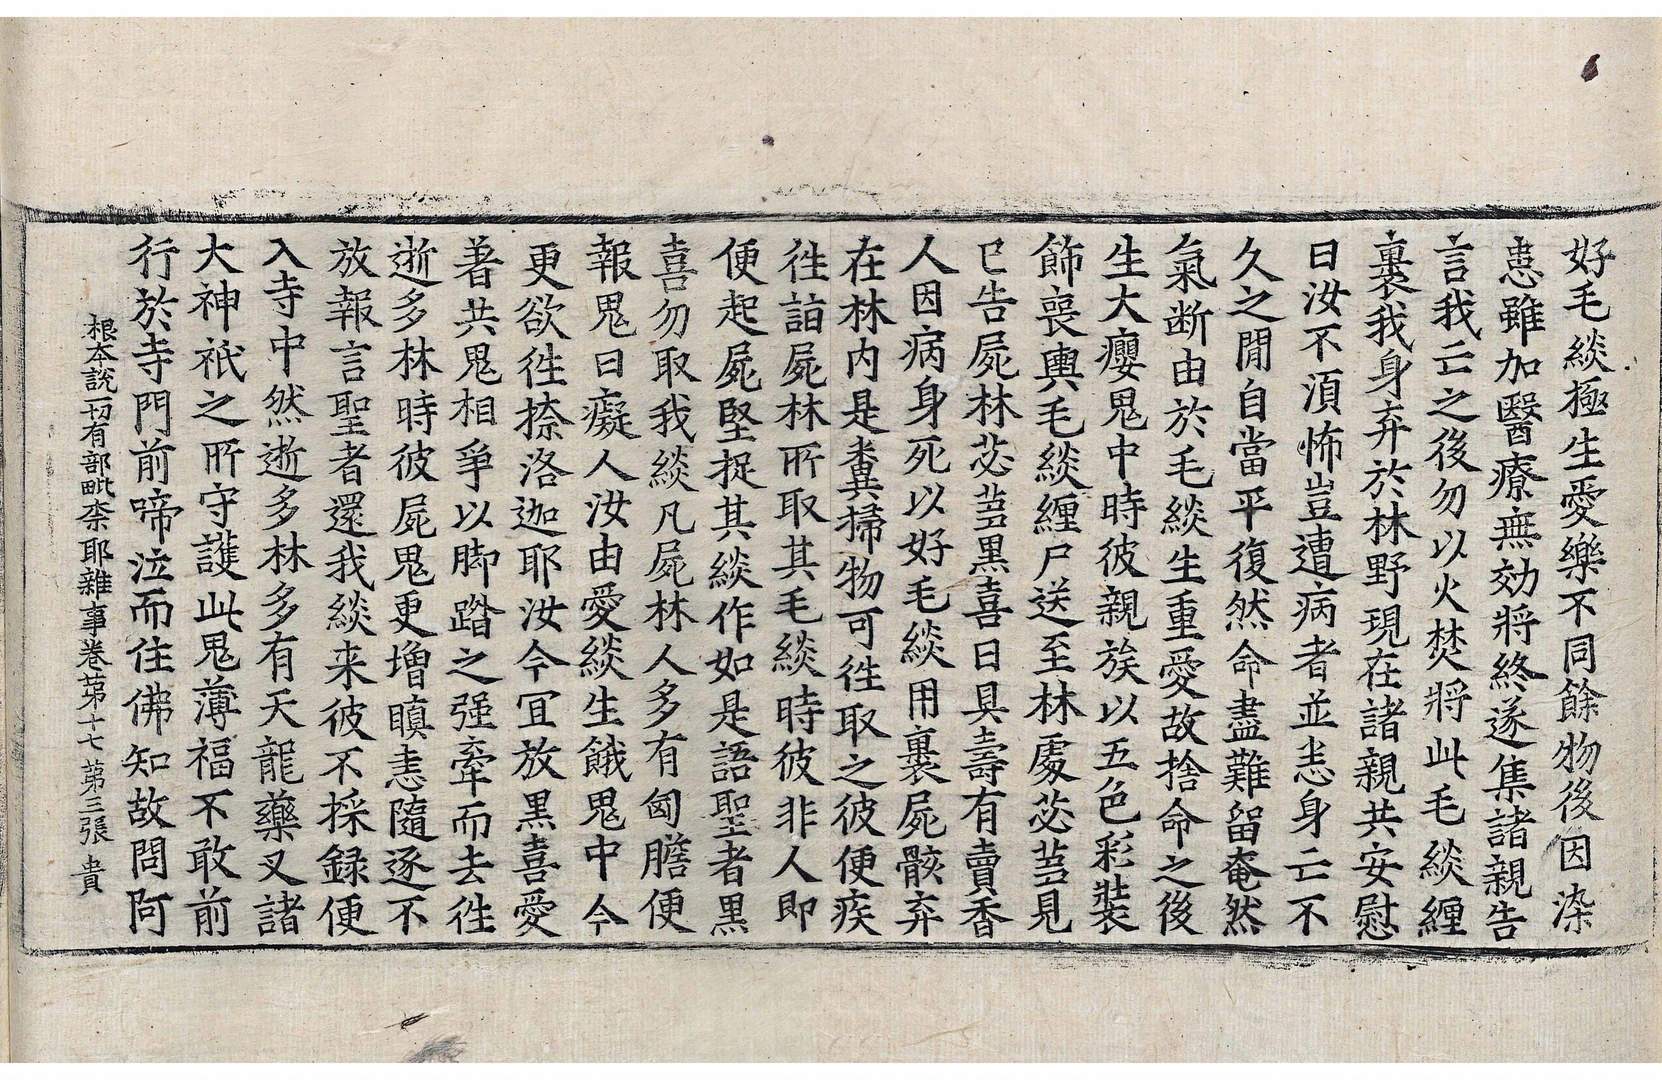 好毛緂極生愛樂不同餘物後因染
患雖加醫療無効將終遂集諸親告
言我亡之後勿以火焚將此毛緂纏
裹我身弃於林野現在諸親共安慰
曰汝不湏怖豈遭病者並恙身亡不
久之閒自當平復然命盡難留奄然
氣斷由於毛緂生重愛故捨命之後
生大癭鬼中時彼親族以五色彩裝
飾喪輿毛緂纏尸送至林處苾蒭見
已告屍林苾蒭黒喜曰具壽有賣香
人因病身死以好毛緂用裹屍骸弃
在林内是糞掃物可徃取之彼便疾
徃詣屍林所取其毛緂時彼非人即
便起屍堅捉其緂作如是語聖者黒
喜勿取我緂凡屍林人多有匈膽便
報鬼曰癡人汝由愛緂生餓鬼中今
更欲徃捺洛迦耶汝今冝放黒喜愛
著共鬼相爭以脚踏之强牽而去徃
逝多林時彼屍鬼更增瞋恚隨逐不
放報言聖者還我緂来彼不採録便
入寺中然逝多林多有天龍藥叉諸
大神祇之所守護此鬼薄福不敢前
行於寺門前啼泣而住佛知故問阿
根本說一切有部毗奈耶雜事卷苐十七 苐三張 貴